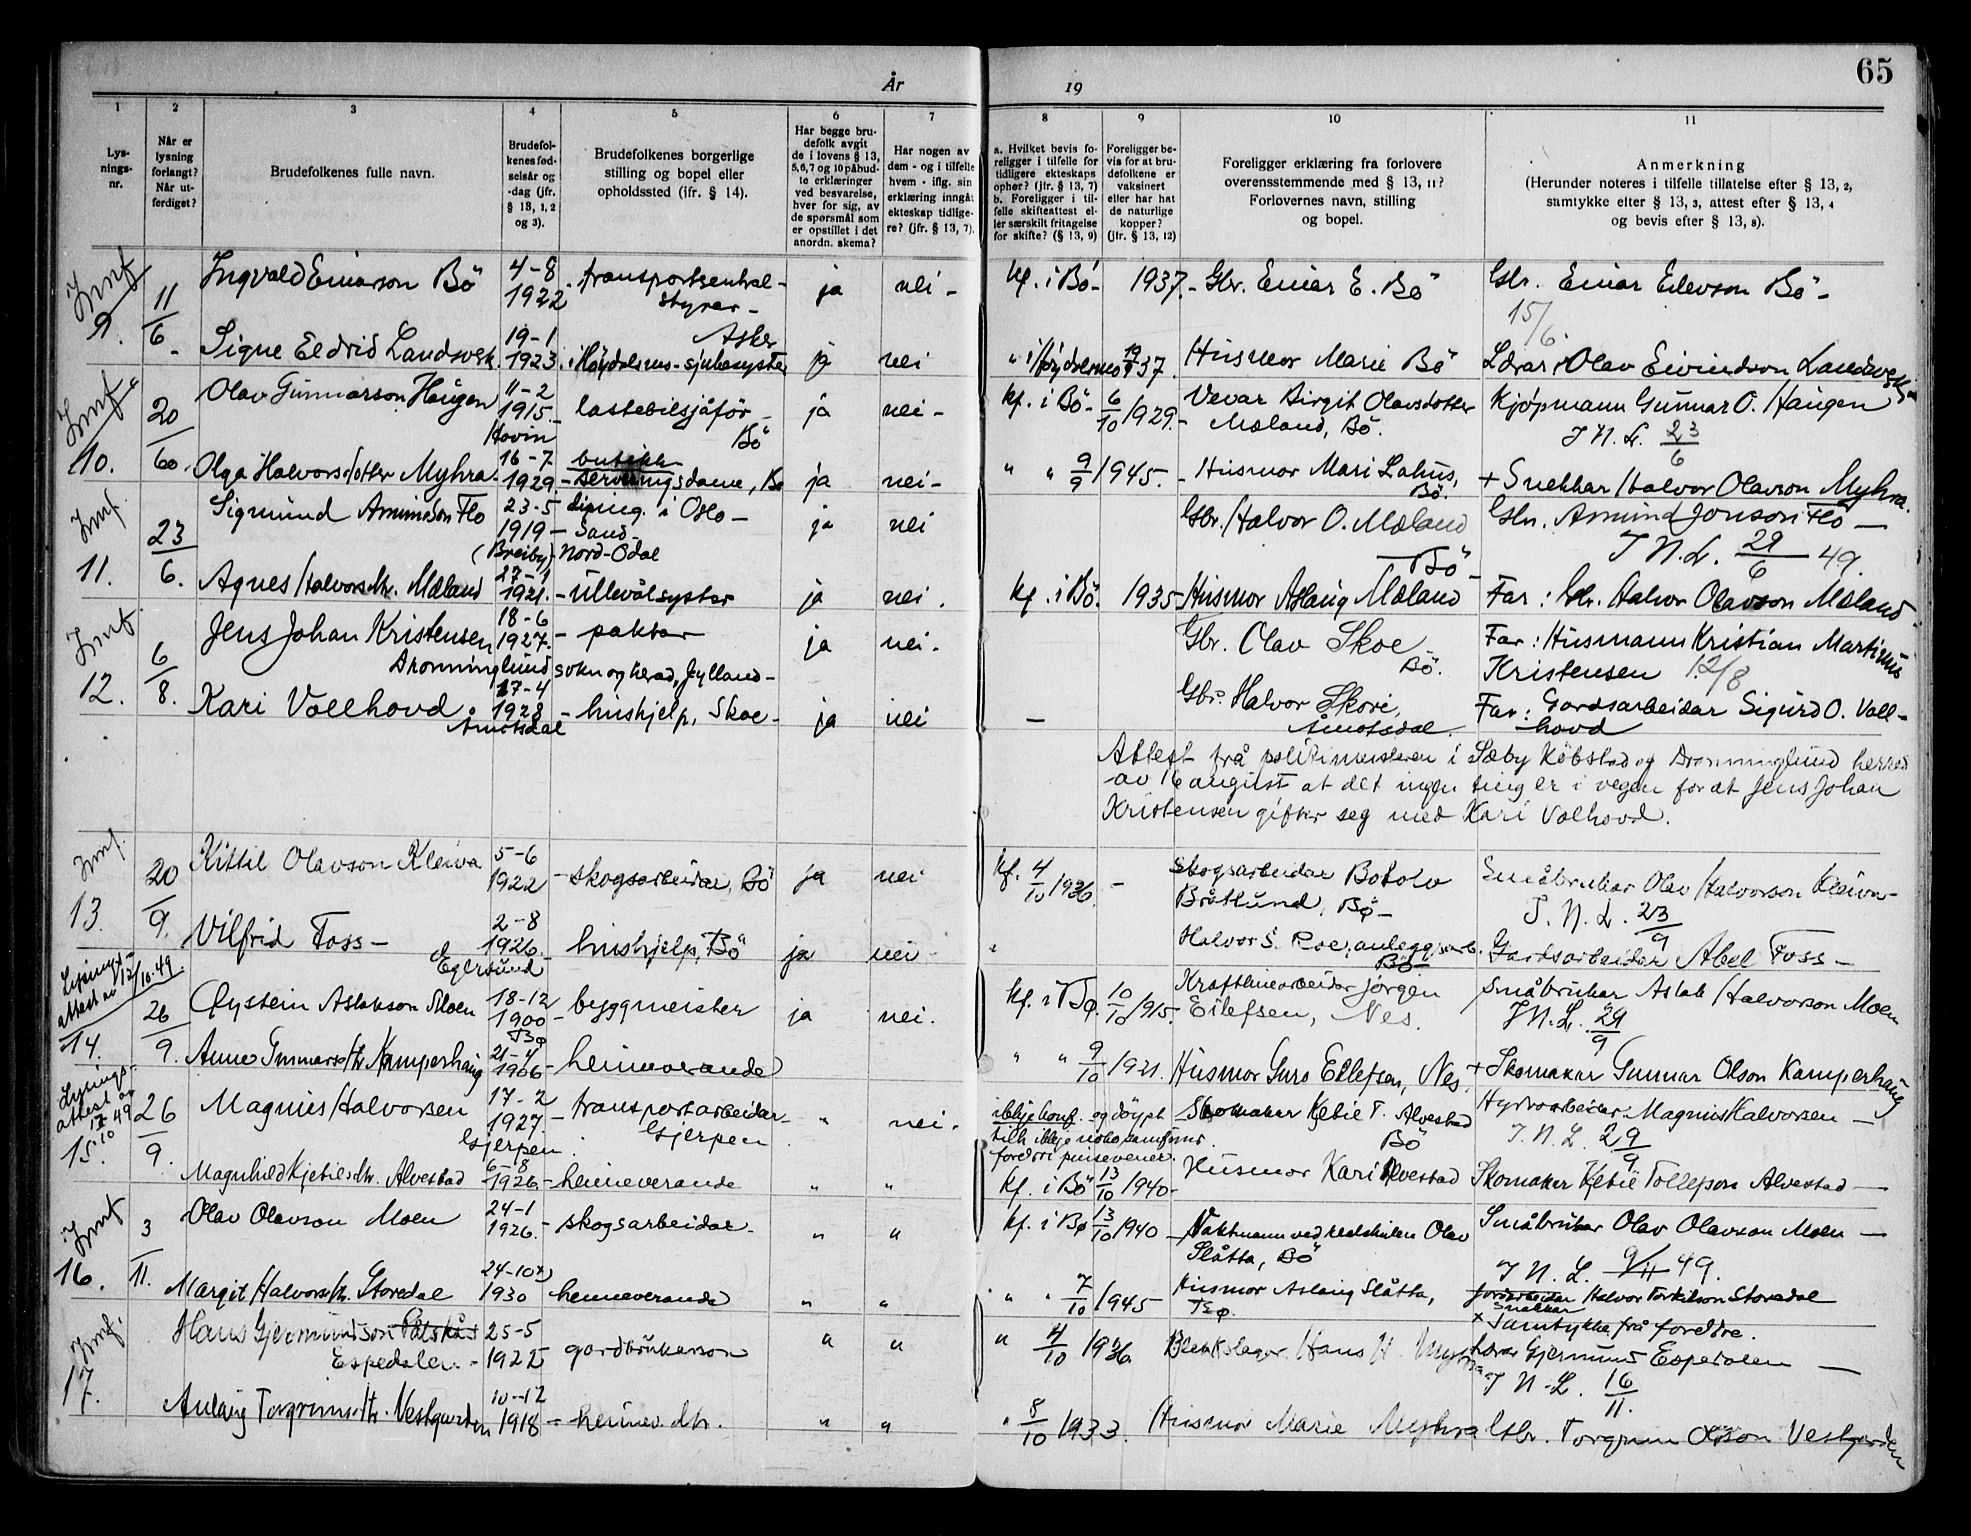 År 19
65
1 2 3 4 5 6 7 8 9 10 11
Lys-
nings-
nr.
Når er
lysning
forlangt?
Når ut-
ferdiget?
Brudefolkenes fulle navn.
Brudefol-
kenes fød-
selsår og
-dag (jfr.
§ 13, 1, 2
og 3).
Brudefolkenes borgerlige
stilling og bopel eller
opholdssted (ifr. § 14).
Har begge bru-
defolk avgit
de i lovens § 13,
5,6,7 og 10 påbud-
te erklæringer
ved besvarelse,
hver for sig, av
de spørsmål som
er opstillet i det
anordn. skema?
Har nogen av
dem - og i tilfelle
hvem - iflg. sin
erklæring inngått
ekteskap tidlige-
re? (jfr. § 13, 7).
a. Hvilket bevis fo-
religger i tilfelle for
tidligere ekteskaps
ophør? (jfr. § 13, 7)
b. Foreligger i til-
felle skifteattest el-
ler særskilt fritagelse
for skifte? (§ 13, 9)
Foreligger be-
vis for at bru-
defolkene er
vaksinert
eller har hat
de naturlige
kopper?
(jfr. § 13, 12)
Foreligger erklæring fra forlovere
overensstemmende med § 13, 11?
Forlovernes navn, stilling
og bopel.
Anmerkning
(Herunder noteres i tilfelle tillatelse efter § 13, 2,
samtykke efter § 13, 3, attest efter § 13, 4
og bevis efter § 13, 8).
9. 11/6 Ingvald Einarson Bö 4-8 1922 transportsentral-
styrar - Asker ja nei - kf. i Bö - 1937. - Gbr. Einar E. Bö Gbr. Einar Eilevson Bö -
15/6
Signe Eldrid Landsverk. 19-1 1923. i Høydalsmo - sjukesyster ja nei 37. Husmor Marie Bö Lærar Olav Eivindson Landsverk
10. 20/6 Olav Gunnarson Haugen 11-2 1915. Hovin lastebilsjåfør - Bö ja nei - kf. i Bö - 6/10 1929. - Vevar Birgit Olavsdotter
Mæland, Bö. Kjøpmann Gunnar O. Haugen
J N. L. 23/6
Olga Halvorsdotter Myhra. 16-7 1929 butikk - serveringsdame, Bø ja nei - " " 9/9 1945. - Husmor Mari Lahus,
Bö. + Snekkar Halvor Olavson Myhra.
Jmf. 11. 23/6. Sigmund Amundson Flo 23-5 1919 - diping. i Oslo -
Sand -
(Breiby) - Nord-Odal ja nei Gbr. Halvor O. Mæland
Bö - Gbr. Amund Jonson Flo -
J N. L. 29/6 49.
Agnes Halvorsdtr. Mæland 27-1 1921. - Ullevålsyster ja nei. kf. i Bö. 1935 - Husmor Aslaug Mæland Far: Gbr. Halvor Olavson Mæland.
12. 6/8. Jens Johan Kristensen 18-6 1927. - paktar
Dronninglund sokn og herad, Jylland - ja nei. Gbr. Olav Skoe
Bö. Far: Husmann Kristian Martinus
Kristensen 12/8
Kari Vollhovd. 17-4 1928 - hushjelp, Skoe -
Åmotsdal ja nei - Gbr. Halvor Skori,
Åmotsdal. Far: Gardsarbeidar Sigurd O. Voll-
hovd
Attest frå politimeisteren i Sæby Købstad og Dronninglund herred
av 16 august at det ingen ting er i vegen for at Jens Johan
Kristensen gifter seg med Kari Valhovd.
Jmf. 13. 20/9. Kittil Olavson Kleiva 5-6 1922 - skogsarbeidar, Bö ja nei kf. 4/10 1936. - Skogsarbeidar Botolv
Bråtlund, Bø - Småbrukar Olav Halvorson Kleiva -
J. N. L. 23/9
Vilfrid Foss - 2-8 1926. Egersund hushjelp, Bö ja nei Halvor S. Roe, anleggsarb.
Bö - Gardsarbeidar Abel Foss -
Lysings-
attest av 12/10-49
14. 26/9. Øystein Aslakson Moen 18-12 1900 - Bø byggmeister ja nei. kf. i Bø. 10/10 1915. Kraftlinearbeidar Jørgen
Eilefsen, Nes. Småbrukar Aslak Halvorson Moen
J N. L. 29/9
Anne Gunnarsdtr Kamperhaug 21-4 1906 - heimeverande " " 9/10 1921. Husmor Guro Ellefsen, Nes. + Skomakar Gunnar Olson Kamperhaug
Lysings-
attest av
12/10 49
15. 26/9. Magnus Halvorsen 17-2 1927. Gjerpen transportarbeidar -
Gjerpen " nei. ikkje konf. og døypt
foreldri pinsevener. Skomaker Kjetil T. Alvestad
Bö Hydroarbeidar Magnus Halvorsen -
J. N. L. 29/9
Magnhild Kjetilsdtr. Alvestad 6-8 1926 - heimeverande " " kf. i Bö 13/10 1940 - Husmor Kari Alvestad Skomaker Kjetil Tollefson Alvestad -
16. 3/11. Olav Olavson Moen 24-1 1926. - skogsarbeidar - " " kf. i Bø 13/10 1940 - Vaktmann ved realskulen Olav
Slåtta, Bö Småbrukar Olav Olavson Moen -
J N. L. 9/11 49.
Margit Halvorsdtr. Storedal 24-10 x) 1930 heimeverande " " " " 7/10 1945 Husmor Aslaug Slåtta,
Bø. Jordarbeidar Halvor Torkilson Storedal
Snekkar
x Samtykke frå foreldre.
Jmf. 17. Hans Gjermundson
Espedalen - 25-5 1922 gardbrukarson " " " 4/10 1936 Blekkslagar Hans H. Myhra Lærar Gjermund Espedalen -
J N. L. 16/11.
Aslaug Torgrimsdtr. Vestgarden 10-12 1918 - heimev. dtr. " " " 8/10 1933. Husmor Marie Myhra Gbr. Torgrim Olson Vestgarden